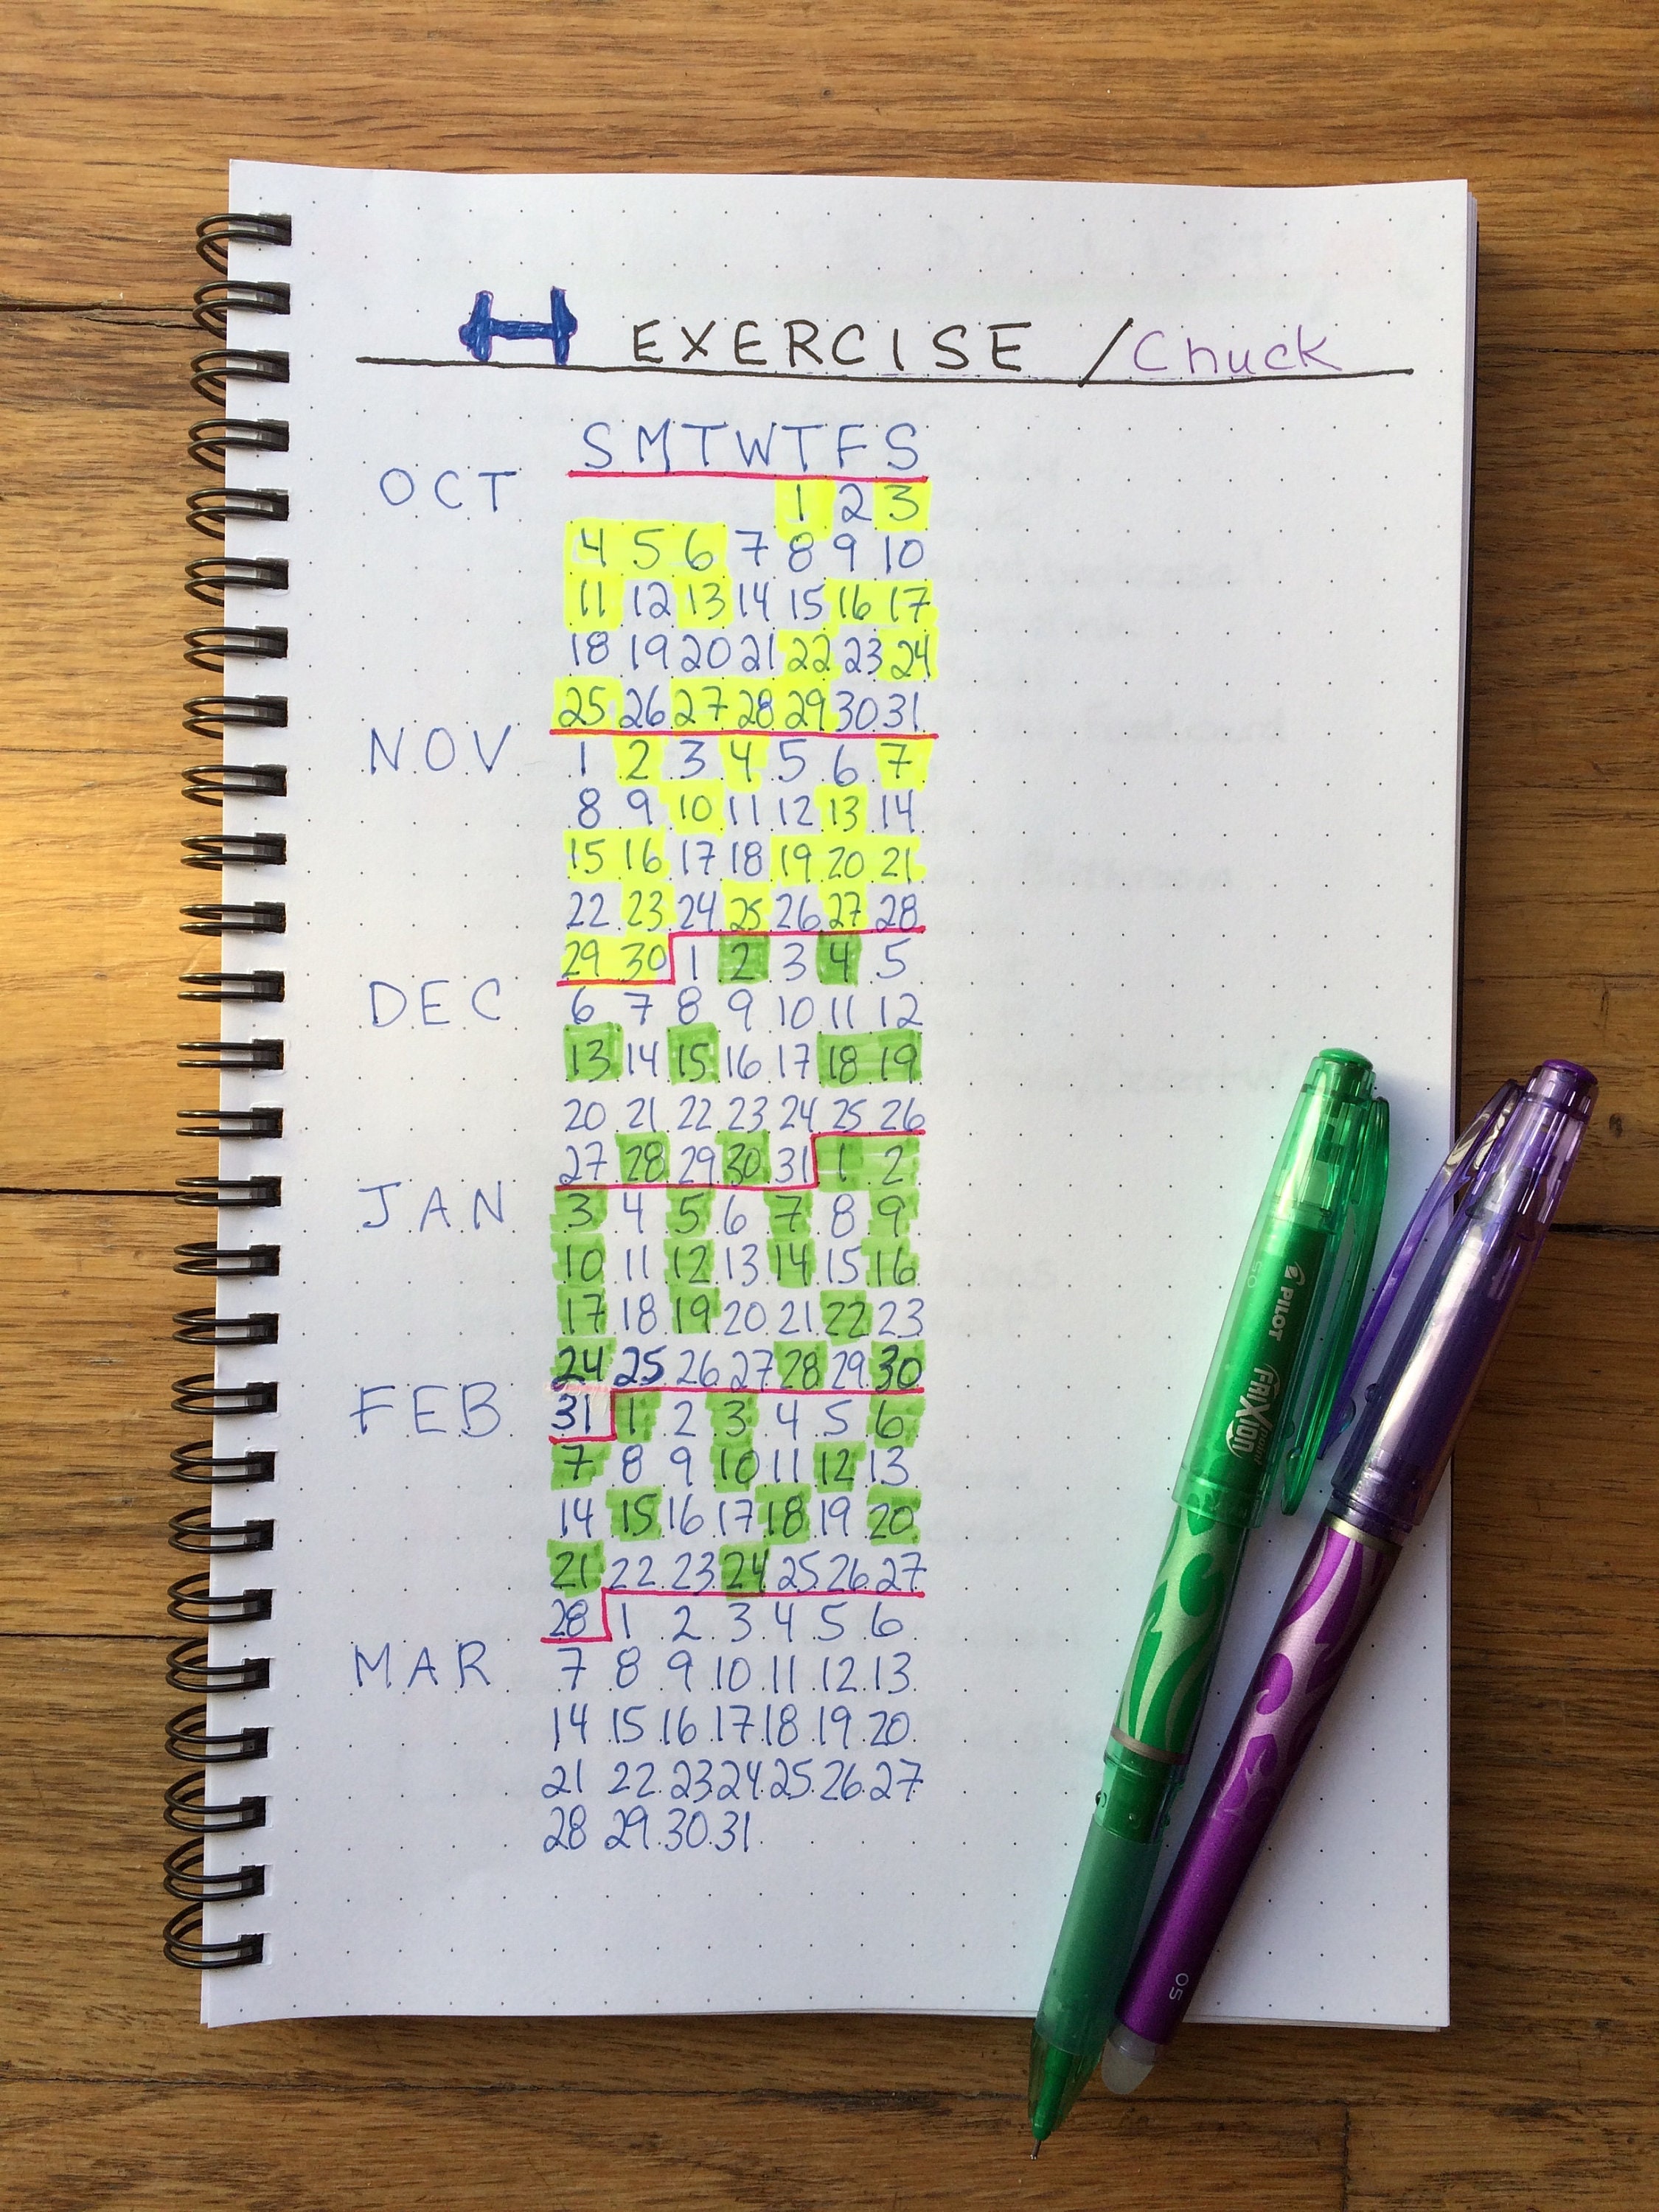 EXERCISE / Chuck
S M T W T F S
OCT
1 2 3
4 5 6 7 8 9 10
11 12 13 14 15 16 17
18 19 20 21 22 23 24
25 26 27 28 29 30 31
NOV
1 2 3 4 5 6 7
8 9 10 11 12 13 14
15 16 17 18 19 20 21
22 23 24 25 26 27 28
29 30 1 2 3 4 5
DEC
6 7 8 9 10 11 12
13 14 15 16 17 18 19
20 21 22 23 24 25 26
27 28 29 30 31 1 2
JAN
3 4 5 6 7 8 9
10 11 12 13 14 15 16
17 18 19 20 21 22 23
24 25 26 27 28 29 30
FEB
31 1 2 3 4 5 6
7 8 9 10 11 12 13
14 15 16 17 18 19 20
21 22 23 24 25 26 27
28 1 2 3 4 5 6
MAR
7 8 9 10 11 12 13
14 15 16 17 18 19 20
21 22 23 24 25 26 27
28 29 30 31
05 PILOT
FRIXion
point
05